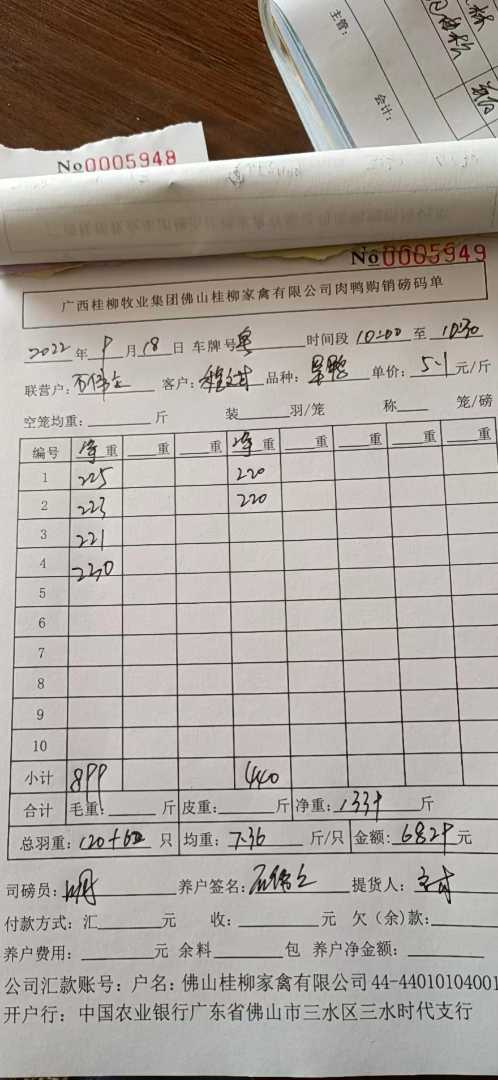 主管:
会计:
No 0005948
No 0005949
广西桂柳牧业集团佛山桂柳家禽有限公司肉鸭购销磅码单
2022年9月18日 车牌号粤 时间段10:00至10:30
联营户: 客户: 品种: 旱鸭 单价: 5.1元/斤
空笼均重: 斤 装 羽/笼 称 笼/磅
编号 净重 重 重 净重 重 重 重 重
1 225 220
2 223 220
3 221
4 230
5
6
7
8
9
10
小计 899 440
合计 毛重: 斤 皮重: 斤 净重: 1339斤
总羽重: 120+62只 均重: 7.36斤/只 金额: 6829元
司磅员: 养户签名: 提货人:
付款方式: 汇 元 收: 元 欠(余)款:
养户费用: 元 余料 包 养户净金额:
公司汇款账号: 户名: 佛山桂柳家禽有限公司 44-44010104001
开户行: 中国农业银行广东省佛山市三水区三水时代支行